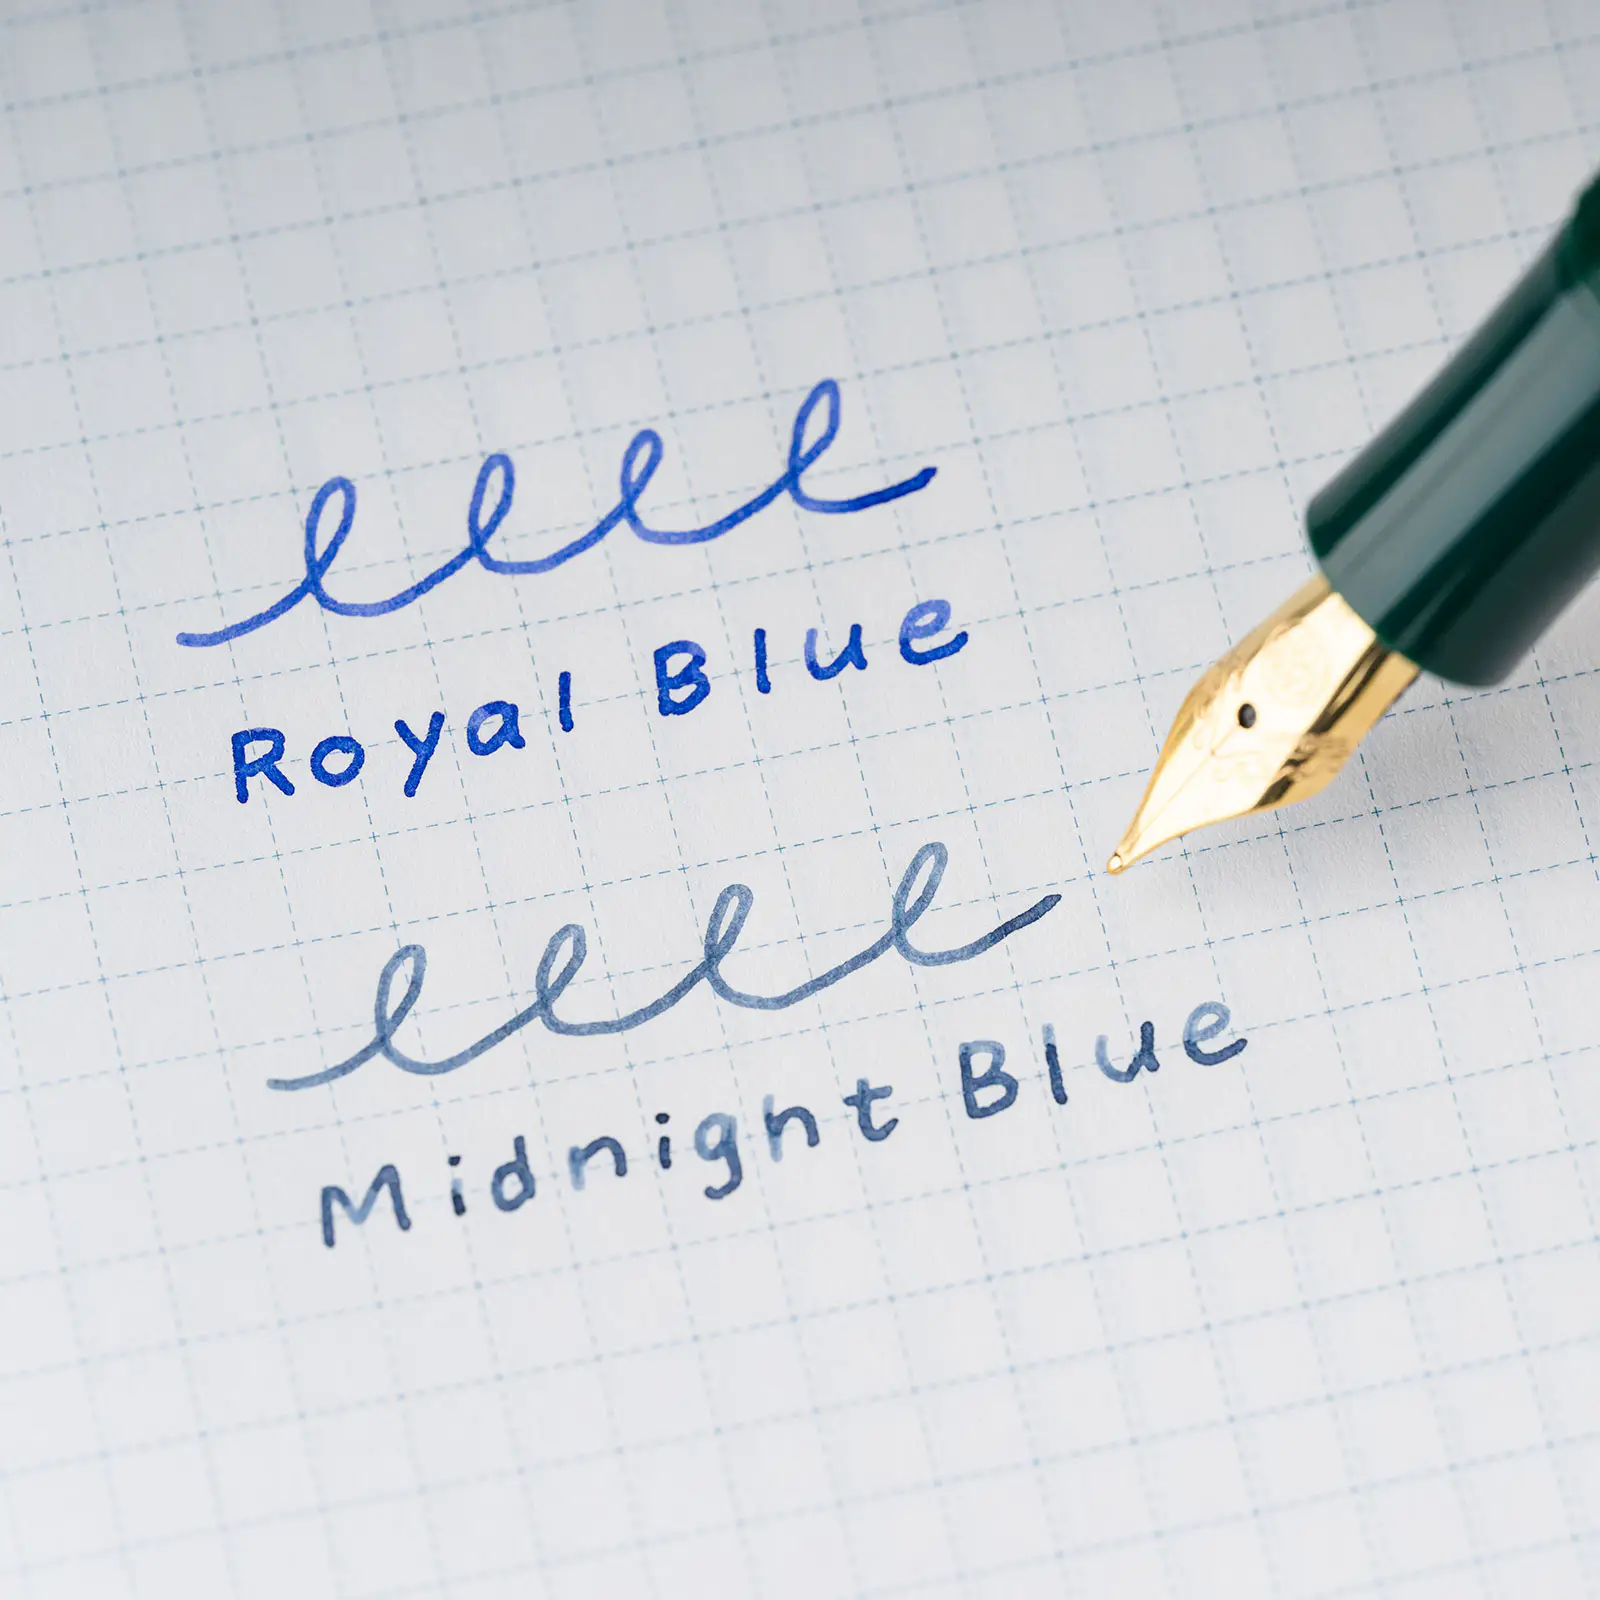 Royal Blue
Midnight Blue